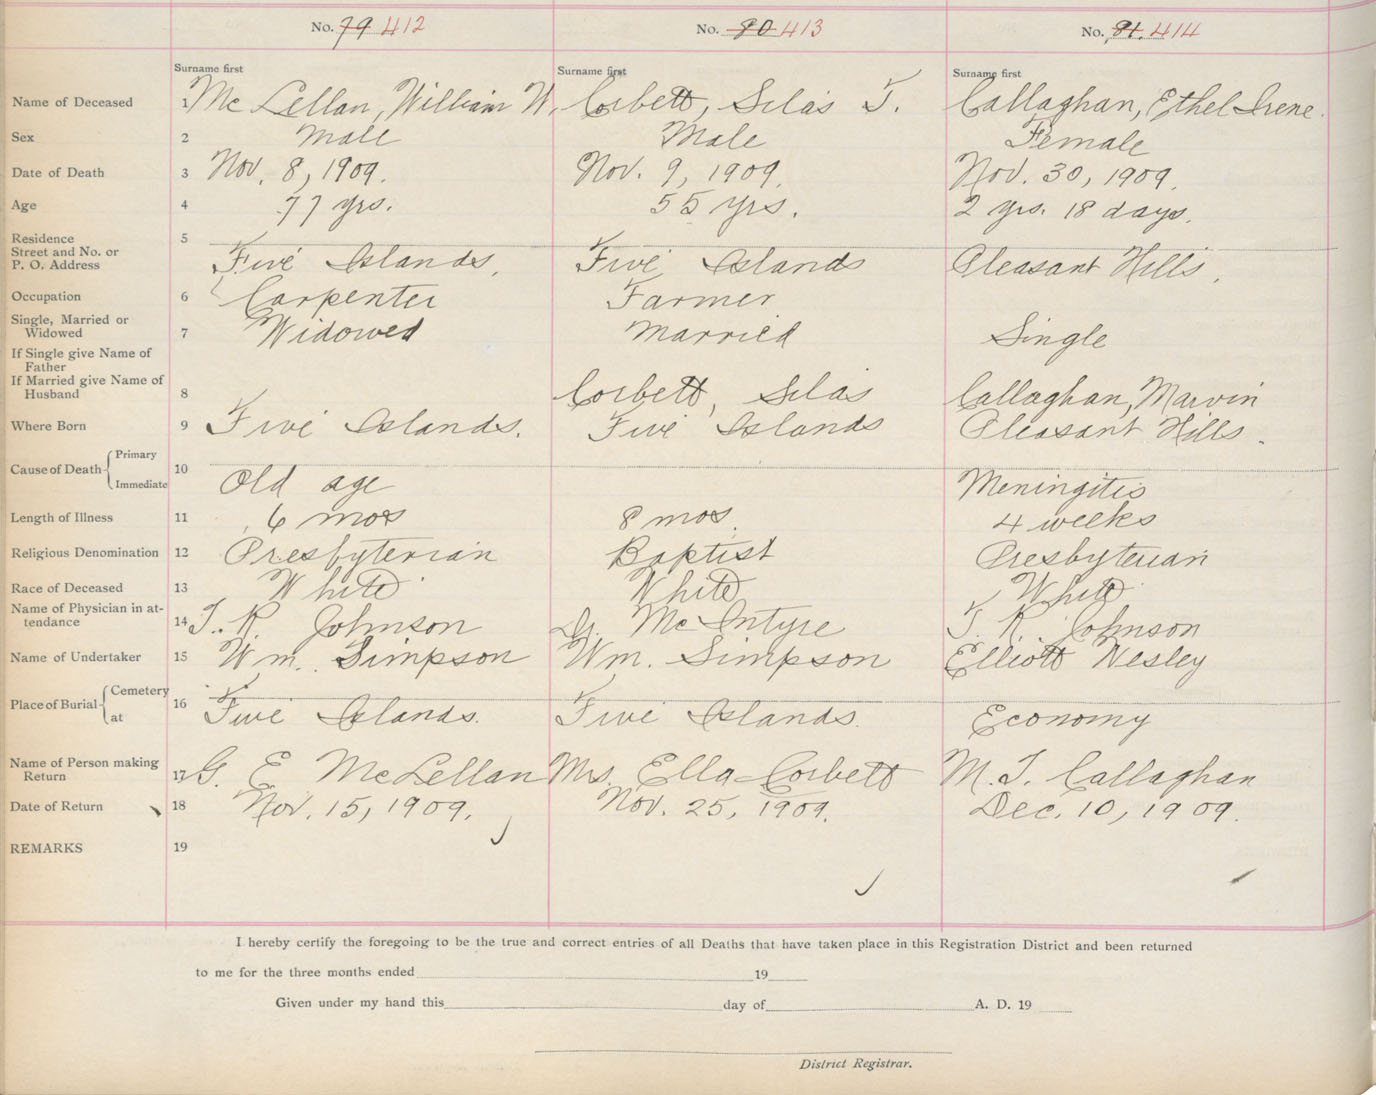 No. 79 412 No. 80 413 No. 81. 414
Surname first Surname first Surname first
Name of Deceased 1 Mc Lellan, William W. Corbett, Silas T. Callaghan, Ethel Irene.
Sex 2 Male Male Female
Date of Death 3 Nov. 8, 1909. Nov. 9, 1909. Nov. 30, 1909.
Age 4 77 yrs. 55 yrs. 2 yrs. 18 days.
Residence 5
Street and No. or
P. O. Address Five Islands. Five Islands Pleasant Hills.
Occupation 6 Carpenter Farmer
Single, Married or
Widowed 7 Widowed Married Single
If Single give Name of
Father
If Married give Name of
Husband 8 Corbett, Silas Callaghan, Marvin
Where Born 9 Five Islands. Five Islands Pleasant Hills.
Cause of Death Primary
Immediate 10 Old age Meningitis
Length of Illness 11 6 mos 8 mos. 4 weeks
Religious Denomination 12 Presbyterian Baptist Presbyterian
Race of Deceased 13 White White White
Name of Physician in at-
tendance 14 T. R. Johnson Dr. McIntyre T. R. Johnson
Name of Undertaker 15 Wm. Simpson Wm. Simpson Elliott Wesley
Place of Burial Cemetery
at 16 Five Islands. Five Islands. Economy
Name of Person making
Return 17 G. E. McLellan Mrs. Ella Corbett M. T. Callaghan
Date of Return 18 Nov. 15, 1909. Nov. 25, 1909. Dec. 10, 1909.
REMARKS 19
I hereby certify the foregoing to be the true and correct entries of all Deaths that have taken place in this Registration District and been returned
to me for the three months ended 19
Given under my hand this day of A. D. 19
District Registrar.